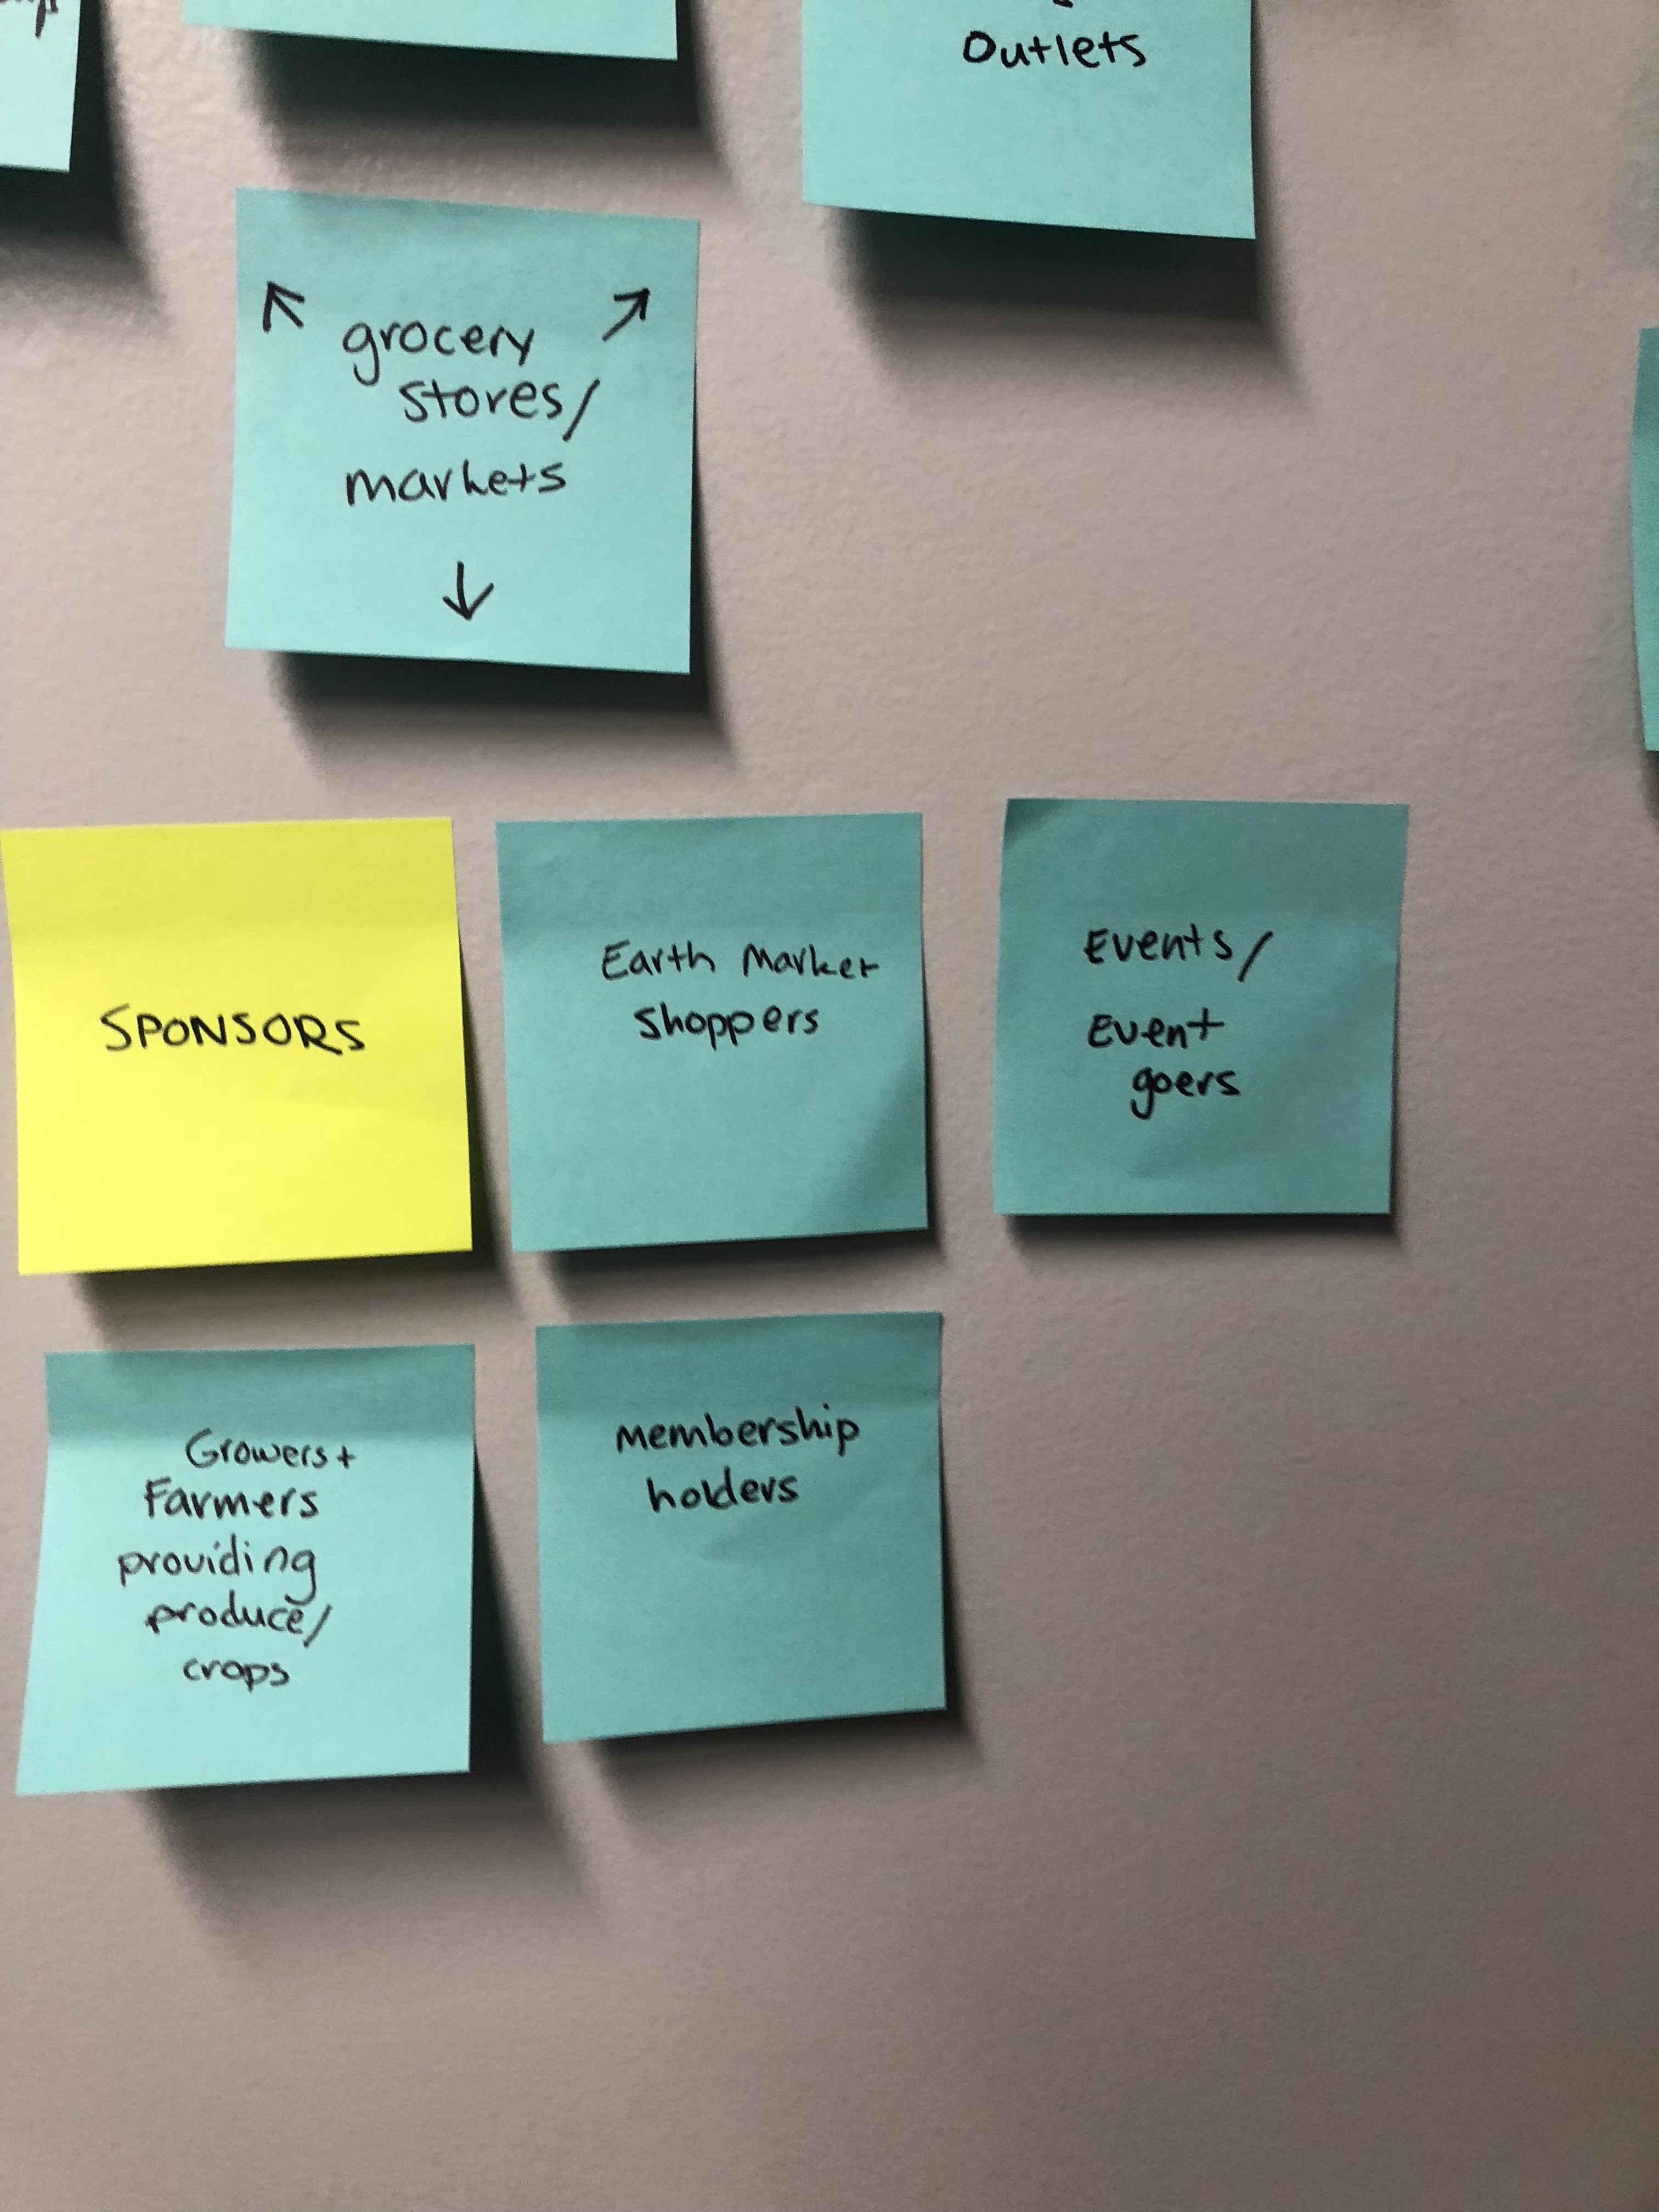 Outlets
grocery
stores/
markets
SPONSORS
Earth Market
shoppers
Events/
Event
goers
Growers+
Farmers
providing
produce/
crops
membership
holders